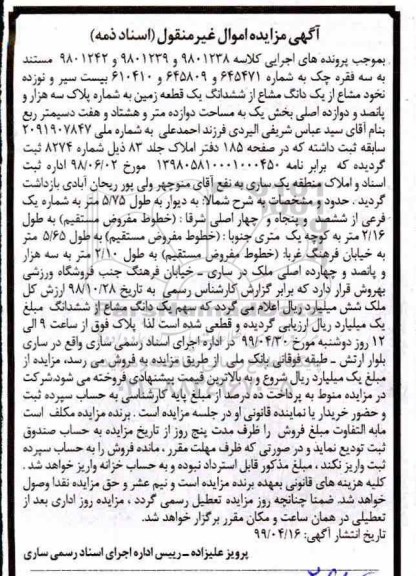 آگهی مزایده اموال غیر منقول (اسناد ذمه)
بموجب پرونده های اجرایی کلاسه ۹۸۰۱۲۳۸ و ۹۸۰۱۲۳۹ و ۹۸۰۱۲۴۲ مستند
به سه فقره چک به شماره ۶۴۵۴۷۱ و ۶۴۵۸۰۹ و ۶۱۰۴۱۰ بیست سیر و نوزده
نخود مشاع از یک دانگ مشاع از ششدانگ یک قطعه زمین به شماره پلاک سه هزار و
پانصد و دوازده اصلی بخش یک به مساحت دوازده متر و هشتاد و هفت دسیمتر ربع
بنام آقای سید عباس شریفی الیردی فرزند احمدعلی به شماره ملی ۲۰۹۱۹۰۷۸۴۷
سابقه ثبت داشته که در صفحه ۱۸۵ دفتر املاک جلد ۸۳ ذیل شماره ۸۲۷۴ ثبت
گردیده که برابر نامه ۱۳۹۸۰۵۸۱۰۰۰۱۰۰۰۴۵۰ مورخ ۹۸/۰۶/۰۲ اداره ثبت
اسناد و املاک منطقه یک ساری به نفع آقای منوچهر ولی پور ریحان آبادی بازداشت
گردید . حدود و مشخصات به شرح شمالا: به دیوار به طول ۵/۷۵ متر به شماره یک
فرعی از ششصد و پنجاه و چهار اصلی شرقا : (خطوط مفروض مستقیم) به طول
۲/۱۶ متر به کوچه یک متری جنوبا : (خطوط مفروض مستقیم) به طول ۵/۶۵ متر
به خیابان فرهنگ غربا: (خطوط مفروض مستقیم) به طول ۲/۱۰ متر به سه هزار
و پانصد و چهارده اصلی ملک در ساری – خیابان فرهنگ جنب فروشگاه ورزشی
بهروش قرار دارد که برابر گزارش کارشناس رسمی به تاریخ ۹۸/۱۰/۲۸ ارزش کل
ملک شش میلیارد ریال اعلام می گردد که سهم یک دانگ مشاع از ششدانگ مبلغ
یک میلیارد ریال ارزیابی گردیده و قطعی شده است لذا پلاک فوق از ساعت ۹ الی
۱۲ روز دوشنبه مورخ ۹۹/۰۴/۳۰ در اداره اجرای اسناد رسمی ساری واقع در ساری
بلوار ارتش – طبقه فوقانی بانک ملی از طریق مزایده به فروش می رسد، مزایده از
مبلغ یک میلیارد ریال شروع و به بالاترین قیمت پیشنهادی فروخته می شود،شرکت
در مزایده منوط به پرداخت ده درصد از مبلغ پایه کارشناسی به حساب سپرده ثبت
و حضور خریدار یا نماینده قانونی او در جلسه مزایده است . برنده مزایده مکلف است
مابه التفاوت مبلغ فروش را ظرف مدت پنج روز از تاریخ مزایده به حساب صندوق
ثبت تودیع نماید و در صورتی که ظرف مهلت مقرر ، مانده فروش را به حساب سپرده
ثبت واریز نکند ، مبلغ مذکور قابل استرداد نبوده و به حساب خزانه واریز خواهد شد .
کلیه هزینه های قانونی بعهده برنده مزایده است و نیم عشر و حق مزایده نقدا وصول
خواهد شد. ضمنا چنانچه روز مزایده تعطیل رسمی گردد ، مزایده روز اداری بعد از
تعطیلی در همان ساعت و مکان مقرر برگزار خواهد شد.
تاریخ انتشار آگهی: ۹۹/۰۴/۱۶
پرویز علیزاده – رییس اداره اجرای اسناد رسمی ساری